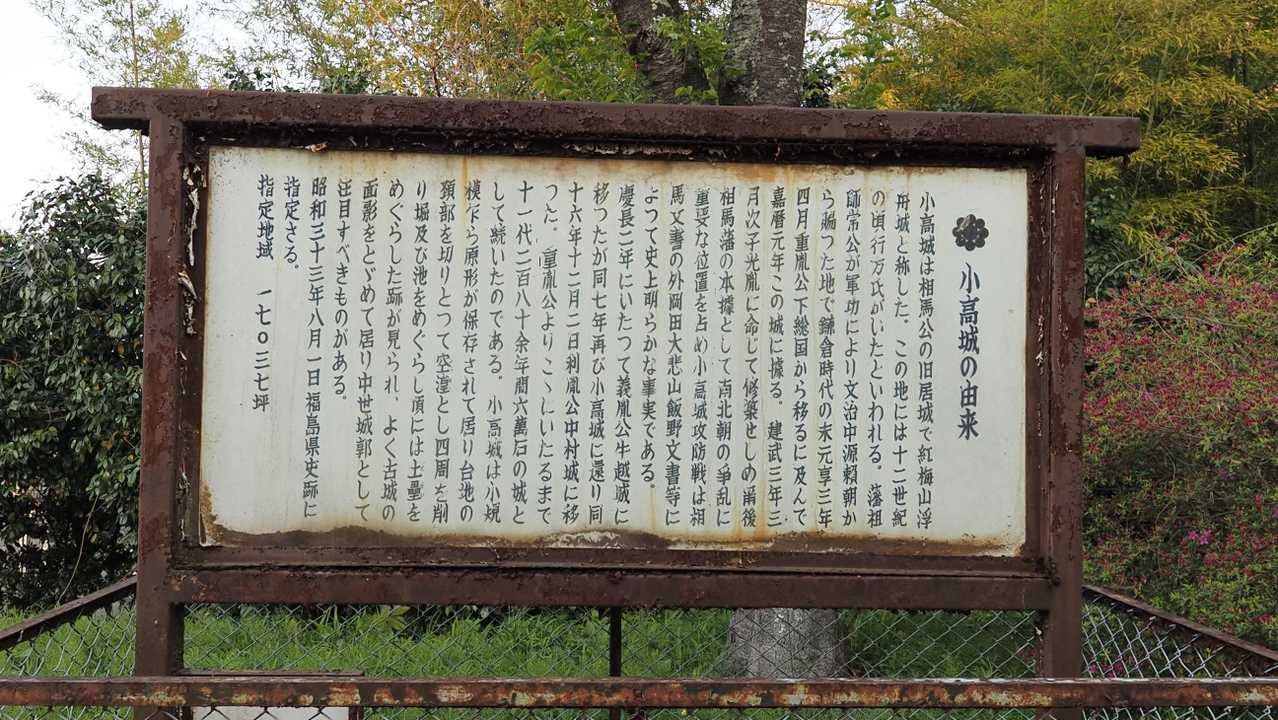 小高城の由来
小高城は相馬公の旧居城で紅梅山浮
舟城と称した。この地には十二世紀
の頃行方氏がいたといわれる。藩祖
師常公が軍功により文治中源頼朝か
ら賜った地で鎌倉時代の末元享三年
四月重胤公下総国から移るに及んで
嘉暦元年この城に據る。建武三年三
月次子光胤に命じて修築せしめ甫後
相馬藩の本據として南北朝の争乱に
重要な位置を占め小高城攻防戦は相
馬文書の外岡田大悲山飯野文書等に
よつて史上明らかな事実である。
慶長二年にいたつて義胤公牛越城に
移つたが同七年再び小高城に還り同
十六年十二月二日利胤公中村城に移
つた。重胤公よりこゝにいたるまで
十一代二百八十余年間六萬石の城と
して続いたのである。小高城は小規
模乍ら原形が保存されて居り台地の
頚部を切りとつて空湟とし四周を削
り堀及び池をめぐらし頂には土塁を
めぐらした跡が見られ、よく古城の
面影をとゞめて居り中世城郭として
注目すべきものがある。
昭和三十三年八月一日福島県史跡に
指定さる。
指定地域 一七〇三七坪